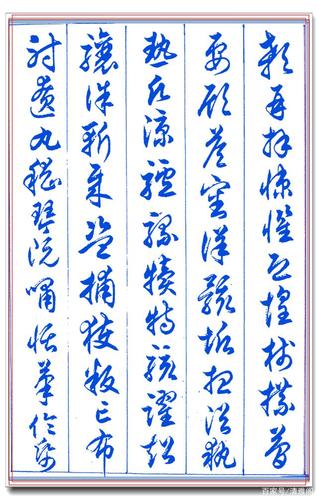 顙再拜悚懼恐惶牋牒簡
要顧答審詳骸垢想浴執
熱願涼驢騾犢特駭躍超
驤誅斬賊盜捕獲叛亡布
射遼丸嵇琴阮嘯恬筆倫紙